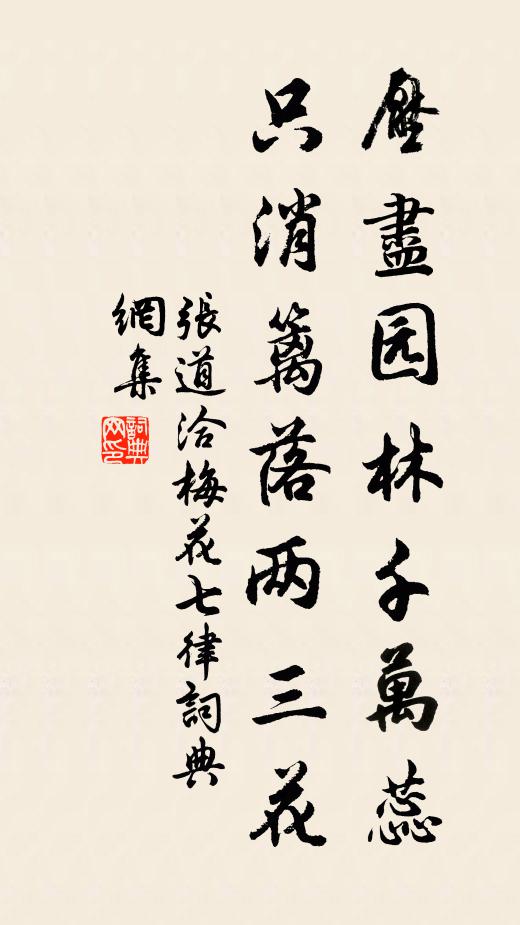 壓盡园林千萬蕊
只消篱落两三花
張道洽梅花七律詞典
網集
詞典
网印